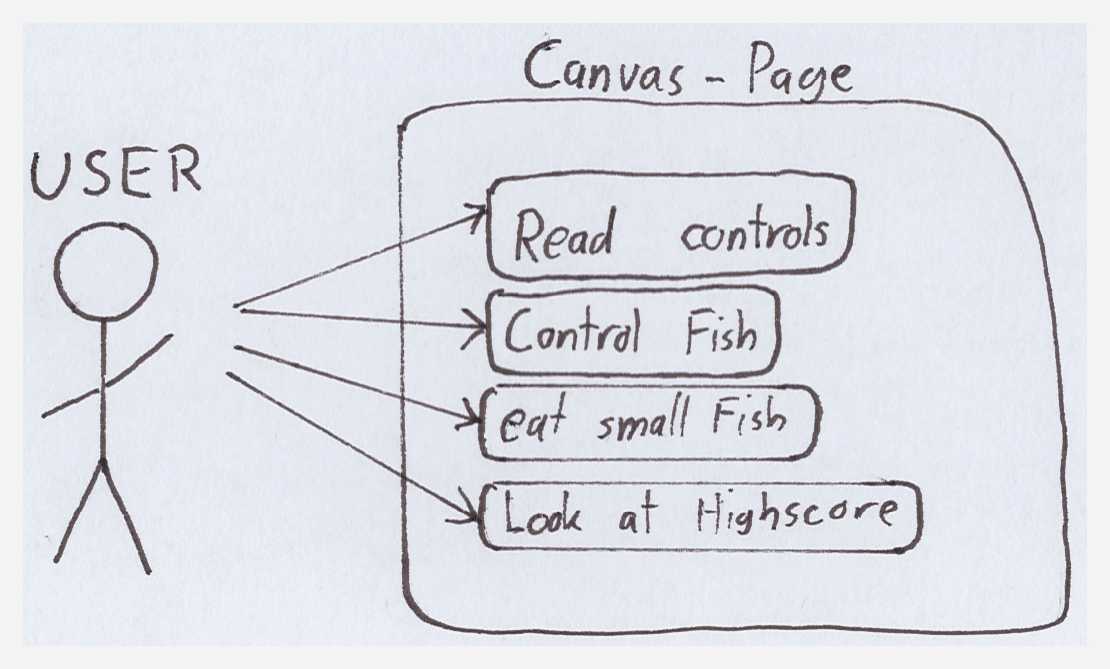 Canvas - Page
USER
Read controls
Control Fish
eat small Fish
Look at Highscore